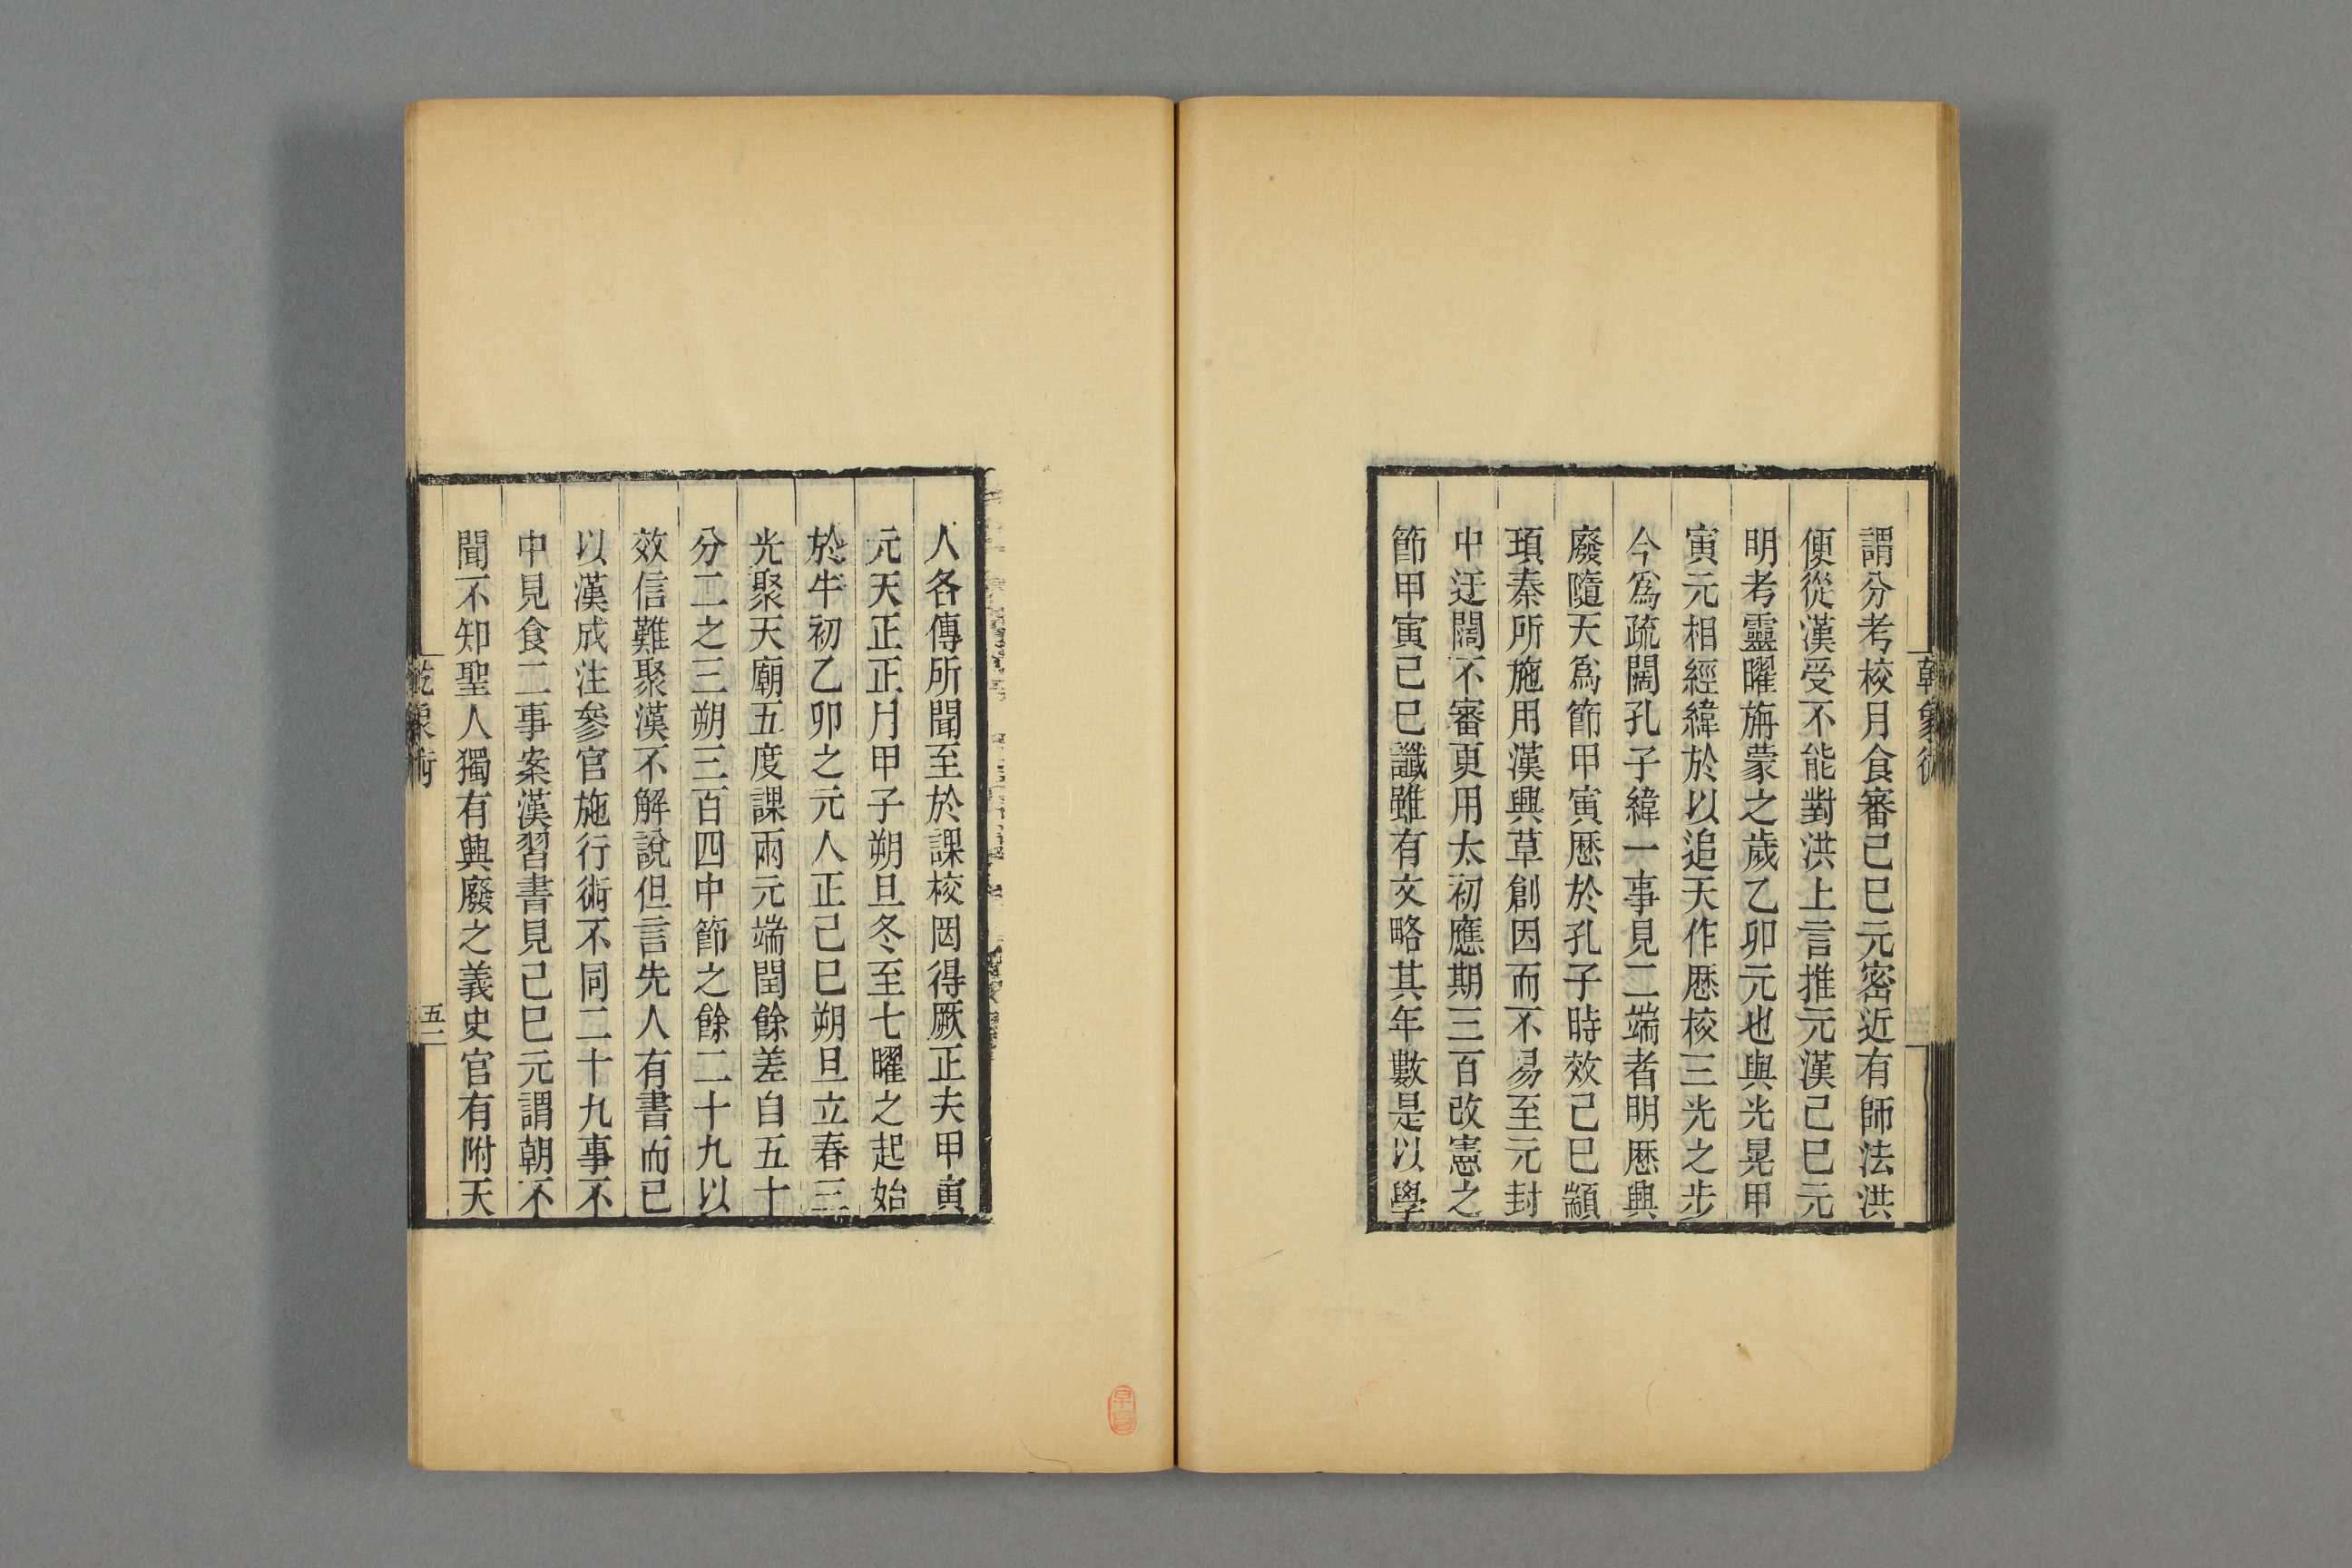 乾象術
謂分考校月食審己巳元密近有師法洪
便從漢受不能對洪上言推元漢己巳元
明考靈曜旃蒙之歲乙卯元也與光晃甲
寅元相經緯於以追天作厯校三光之步
今爲疏闊孔子緯一事見二端者明厯興
廢隨天爲節甲寅厯於孔子時效己巳顓
頊秦所施用漢興草創因而不易至元封
中迂闊不審更用太初應期三百改憲之
節甲寅己巳讖雖有文略其年數是以學
人各傳所聞至於課校罔得厥正夫甲寅
元天正正月甲子朔旦冬至七曜之起始
於牛初乙卯之元人正己巳朔旦立春三
光聚天廟五度課兩元端閏餘差自五十
分二之三朔三百四中節之餘二十九以
效信難聚漢不解說但言先人有書而已
以漢成注參官施行術不同二十九事不
中見食二事案漢習書見己巳元謂朝不
聞不知聖人獨有興廢之義史官有附天
乾象術
五二